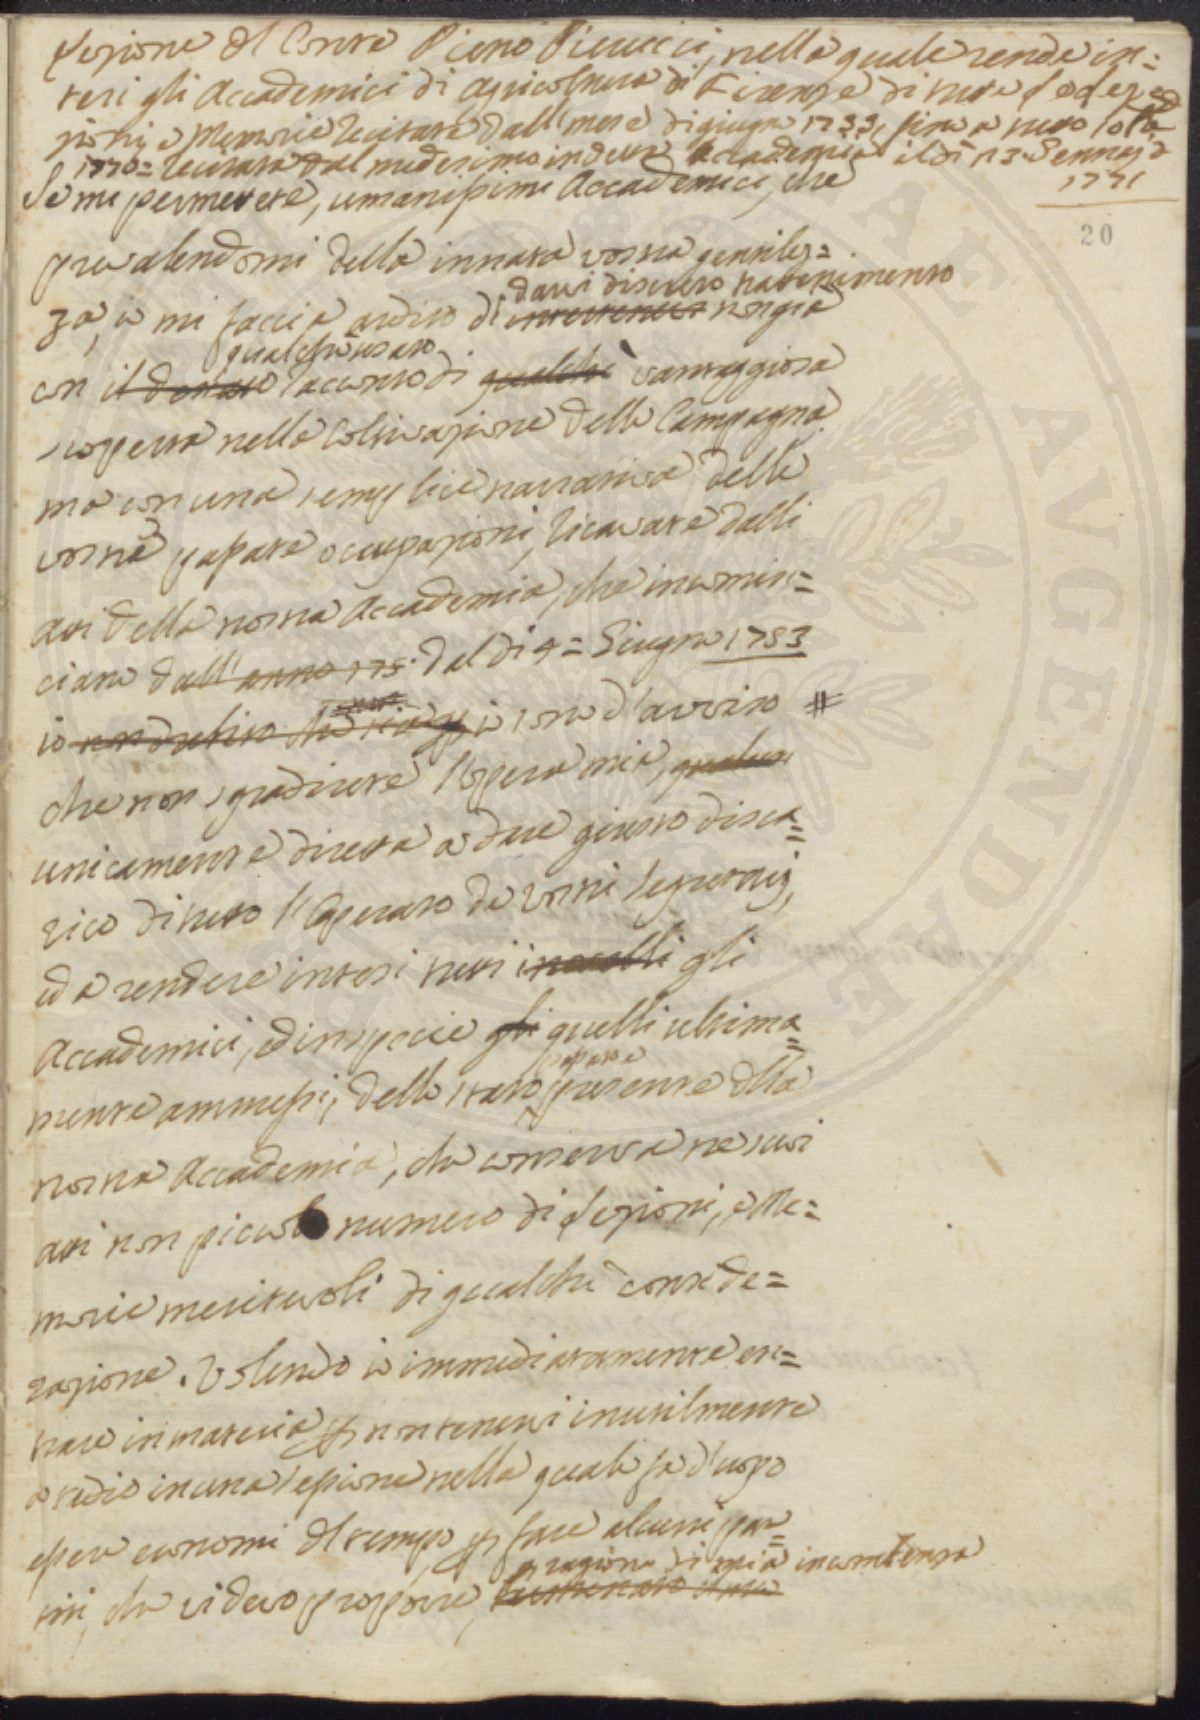 Lezione del Conte Piero Pierucci, nella quale rende in=
tesi gli Accademici di Agricoltura di Firenze di tutte le Lezz
zioni, e Memorie recitate dall'mese di giugno 1753, fino a tutto
1770= recitata dal medesimo in detta Accademia il dì 13 Gennajo
1771
Se mi permettete, umanissimi Accademici, che
20
prevalendomi della innata vostra gentilez=
darvi discreto trattenimento
za, io mi faccia ardito di intrattenervi non già
qualche usato
con il dettato racconto di qualche vantaggiosa
scoperta nella Coltivazione della Campagna
ma con una semplice narrativa delle
vostre passate occupazioni, ricavate dalli
atti della nostra Accademia, che incomin=
ciano dall'anno 175. dal dì 4= Giugno 1753
io non dubito che io sono d'avviso #
che non sgradirete l'opera mia,
unicamente diretta a dare giusto disca=
rico di tutto l'Operato da vostri Segretarj,
ed a rendere intesi tutti gli
Accademici, ed in specie gli quelli ultima=
passato e
mente ammessi, dello stato presente della
nostra Accademia, che conserva ne suoi
atti non piccolo numero di Lezioni, e Me=
morie meritevoli di qualche conside=
razione. Volendo io immediatamente en=
trare in materia per non tenervi inutilmente
a tedio in una sessione nella quale fa d'uopo
esser economi del tempo per fare alcuni par=
per ragione di mia incombenza
titi, che vi devo proporre,